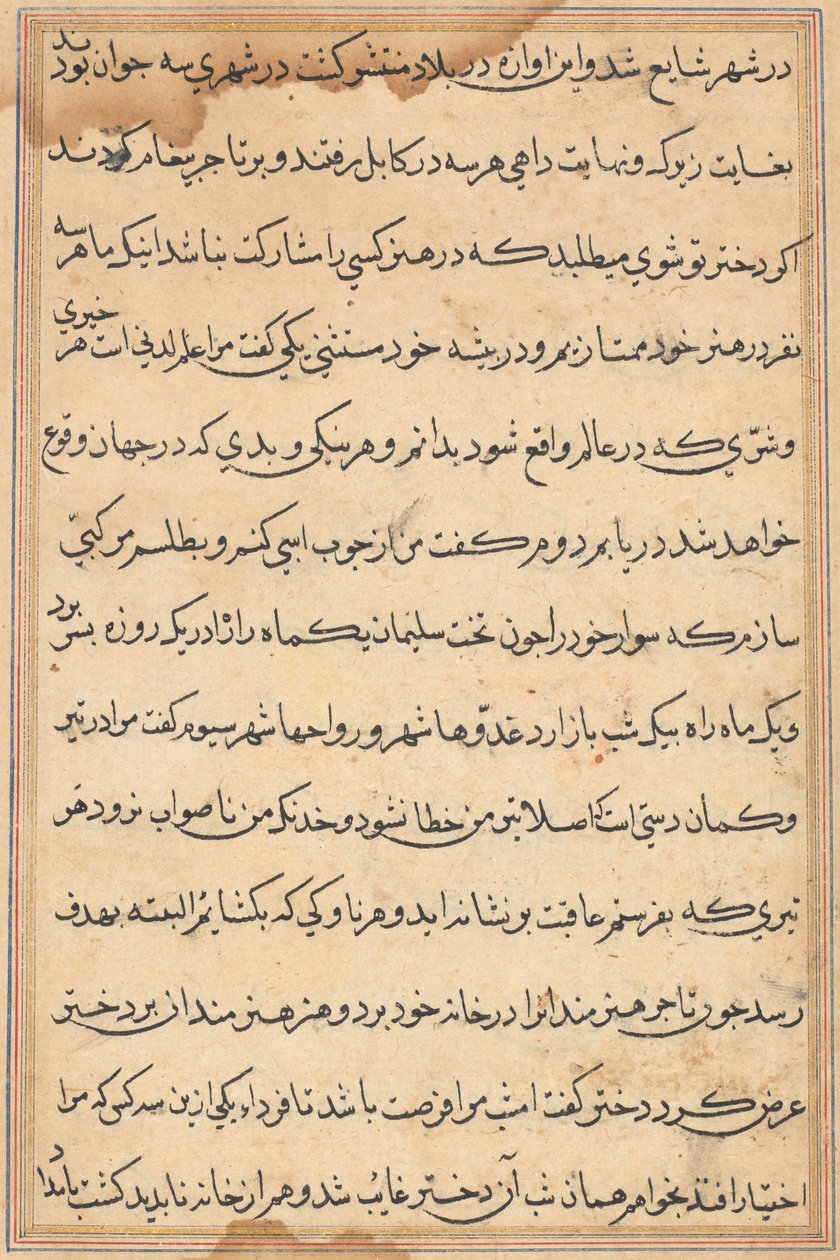 در شهر شایع شد و این اوازه در بلاد منتشر کشت در شهری سه جوان بودند
بغایت زیرک و نهایت داهی هر سه در کابل رفتند و بر تاجر پیغام کردند
اکر دختر تو شوی میطلبد که در هنر کسی را مشارکت نباشد اینک ما هر سه
نفر در هنر خود ممتازیم و در پیشه خود مستثنی یکی کفت مرا علم لدنی است هر خیری
و شرّی که در عالم واقع شود بدانم و هر نیکی و بدی که در جهان وقوع
خواهد شد دریابم دوم کفت من از چوب اسپی کنم و بطلسم مرکبی
سازم که سوار خود را چون تخت سلیمان یکماه راه را در یک روزه بسر برد
و یک ماه راه بیک شب باز ارد غدوّها شهر و رواحها شهر سیوم کفت مرا در تیر
و کمان دستی است که اصلا تیر من خطا نشود و خدنک من ناصواب نرود هر
تیری که بفرستم عاقبت بر نشانه اید و هر ناوکی که بکشایم البته بهدف
رسد چون تاجر هنرمندانرا در خانه خود برد و هنر هنرمندان بر دختر
عرض کرد دختر کفت امشب مرا فرصت باشد تا فردا یکی ازین سه کس که مرا
اختیار افتد بخواهم همان شب آن دختر غایب شد و هم از خانه ناپدید کشت بامداد